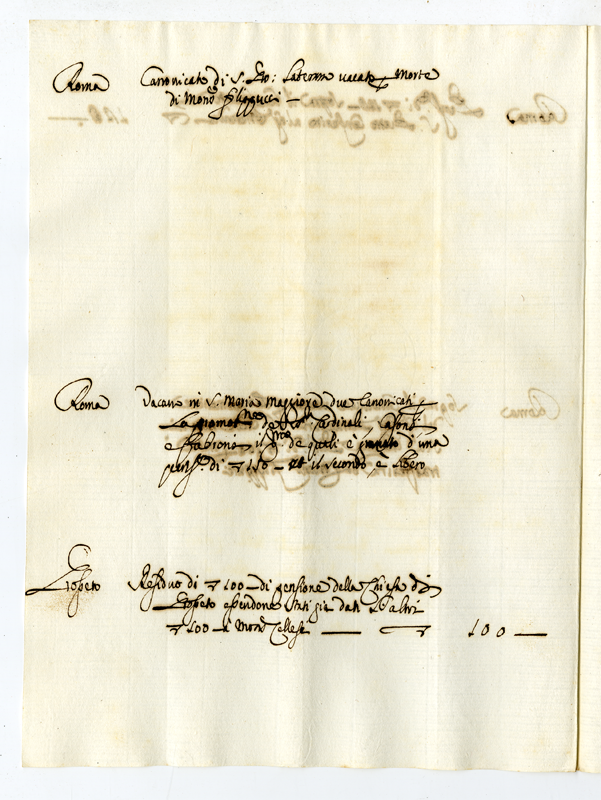 Roma Canonicato di S. Gio: Laterano vacato per Morte
di Monsr Filippucci —
Roma Vacano in S. Maria Maggiore due Canonicati per
La promotne de Sri Cardinali
e il pmo de quali è gravato d'una
pensne di 150 — et il secondo è libero
Loreto Residuo di 100 — di pensione della Chiesa di
Loreto essendone stati già dati li altri
100 — à Monsr Cellesi — 100 —